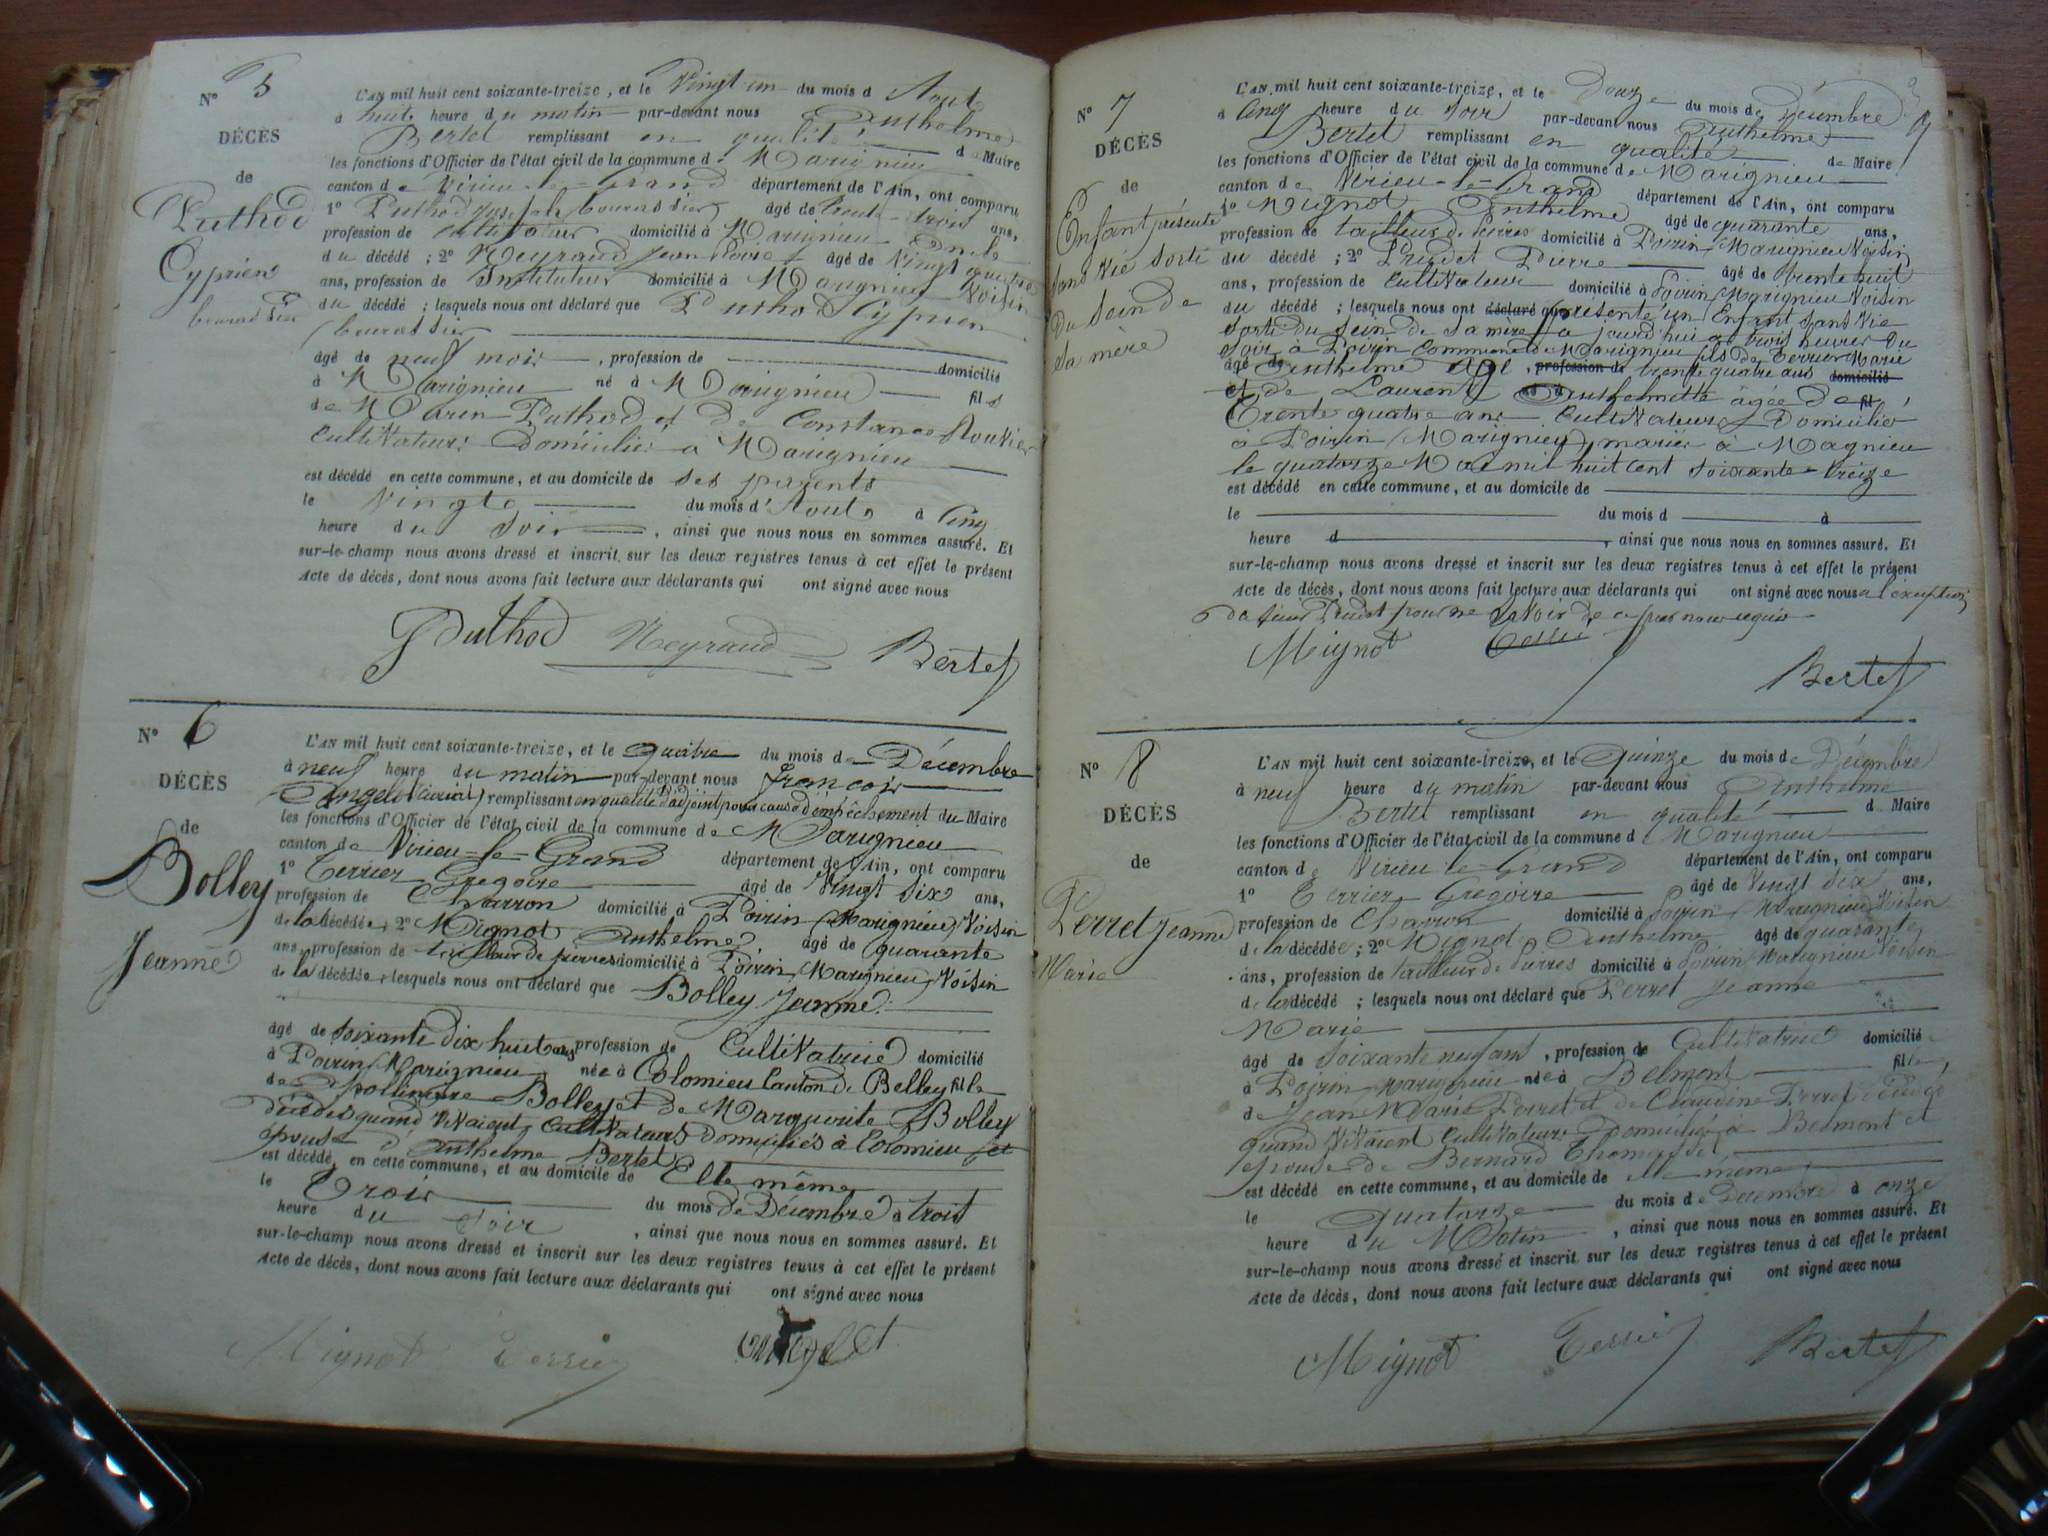 N° 5
DÉCÈS
de
Puthod
Cyprien
L'AN mil huit cent soixante-treize, et le Vingt un du mois d Aout
à huit heure du matin par-devant nous Anthelme
Bertet remplissant en qualité de Maire
les fonctions d'Officier de l'état civil de la commune de Marignieu
canton de Virieu-le-Grand département de l'Ain, ont comparu
1° Puthod Joseph âgé de trente-trois ans,
profession de cultivateur domicilié à Marignieu Oncle
du décédé ; 2° Neyraud Jean Pierre âgé de Vingt quatre
ans, profession de Instituteur domicilié à Marignieu Voisin
du décédé ; lesquels nous ont déclaré que Puthod Cyprien
âgé de neuf mois , profession de domicilié
à Marignieu né à Marignieu fils
de Marin Puthod et de Constance
Cultivateurs Domiciliés à Marignieu
est décédé en cette commune, et au domicile de ses parents
le Vingt du mois d'Aout à Cinq
heure du Soir , ainsi que nous nous en sommes assuré. Et
sur-le-champ nous avons dressé et inscrit sur les deux registres tenus à cet effet le présent
Acte de décès, dont nous avons fait lecture aux déclarants qui ont signé avec nous
J Puthod Neyraud Bertet
N° 6
DÉCÈS
de
Bolley
Jeanne
L'AN mil huit cent soixante-treize, et le quatre du mois de Décembre
à neuf heure du matin par-devant nous françois
Angelot remplissant en qualité d'adjoint pour cause d'empêchement du Maire
les fonctions d'Officier de l'état civil de la commune de Marignieu
canton de Virieu-le-Grand département de l'Ain, ont comparu
1° Terrier Gregoire âgé de Vingt six ans,
profession de Charron domicilié à Poirin (Marignieu) Voisin
de la décédée ; 2° Mignot Anthelme, âgé de quarante
ans, profession de tailleur de pierres domicilié à Poirin (Marignieu) Voisin
de la décédée, lesquels nous ont déclaré que Bolley Jeanne
âgé de soixante dix huit ans profession de Cultivatrice domicilié
à Poirin (Marignieu) née à Colomieu Canton de Belley fille
de Apollinaire Bolley et de Marguerite Bolley
décédés quand Vivaient Cultivateurs domiciliés à Colomieu et
épouse d'Anthelme Bertet
est décédé en cette commune, et au domicile de Elle même
le Trois du mois de Décembre à trois
heure du soir , ainsi que nous nous en sommes assuré. Et
sur-le-champ nous avons dressé et inscrit sur les deux registres tenus à cet effet le présent
Acte de décès, dont nous avons fait lecture aux déclarants qui ont signé avec nous
Mignot Terrier Angelot
N° 7
DÉCÈS
de
Enfant présenté
sans Vie sorti
du sein de
sa mère
L'AN mil huit cent soixante-treize, et le Douze du mois de Décembre
à cinq heure du soir par-devant nous Anthelme
Bertet remplissant en qualité de Maire
les fonctions d'Officier de l'état civil de la commune de Marignieu
canton de Virieu-le-Grand département de l'Ain, ont comparu
1° Mignot Anthelme âgé de quarante ans,
profession de tailleur de pierres domicilié à Poirin (Marignieu) Voisin
du décédé ; 2° Prudet Pierre âgé de trente huit
ans, profession de Cultivateur domicilié à Poirin (Marignieu) Voisin
du décédé ; lesquels nous ont déclaré que présenté un Enfant sans Vie
sorti du sein de sa mère aujourd'hui à trois heures du
soir à Poirin Commune de Marignieu fils de Terrier Marie
Anthelme âgé de trente quatre ans
et de Laurent Anthelmette âgée de
Trente quatre ans Cultivateurs Domiciliés
à Poirin (Marignieu) mariés à Magnieu
le quatorze Mai mil huit cent soixante-treize
est décédé en cette commune, et au domicile de
le du mois d à
heure d , ainsi que nous nous en sommes assuré. Et
sur-le-champ nous avons dressé et inscrit sur les deux registres tenus à cet effet le présent
Acte de décès, dont nous avons fait lecture aux déclarants qui ont signé avec nous a l'exception
du sieur Prudet pour ne savoir de ce par nous requis
Mignot Terrier
Bertet
N° 8
DÉCÈS
de
Perret Jeanne
Marie
L'AN mil huit cent soixante-treize, et le Quinze du mois de Décembre
à neuf heure du matin par-devant nous Anthelme
Bertet remplissant en qualité de Maire
les fonctions d'Officier de l'état civil de la commune de Marignieu
canton de Virieu-le-Grand département de l'Ain, ont comparu
1° Terrier Gregoire âgé de Vingt six ans,
profession de Charron domicilié à Poirin (Marignieu) Voisin
de la décédée ; 2° Mignot Anthelme âgé de quarante
ans, profession de tailleur de Pierres domicilié à Poirin (Marignieu) Voisin
de la décédé ; lesquels nous ont déclaré que Perret Jeanne
Marie
âgé de soixante neuf ans , profession de Cultivatrice domicilié
à Poirin Marignieu née à Belmont fille
de Jean Marie Perret et de Claudine Perret
quand Vivaient Cultivateurs domiciliés à Belmont et
épouse de Bernard Thomasset
est décédé en cette commune, et au domicile de elle même
le quatorze du mois de Décembre à onze
heure du Matin , ainsi que nous nous en sommes assuré. Et
sur-le-champ nous avons dressé et inscrit sur les deux registres tenus à cet effet le présent
Acte de décès, dont nous avons fait lecture aux déclarants qui ont signé avec nous
Mignot Terrier Bertet